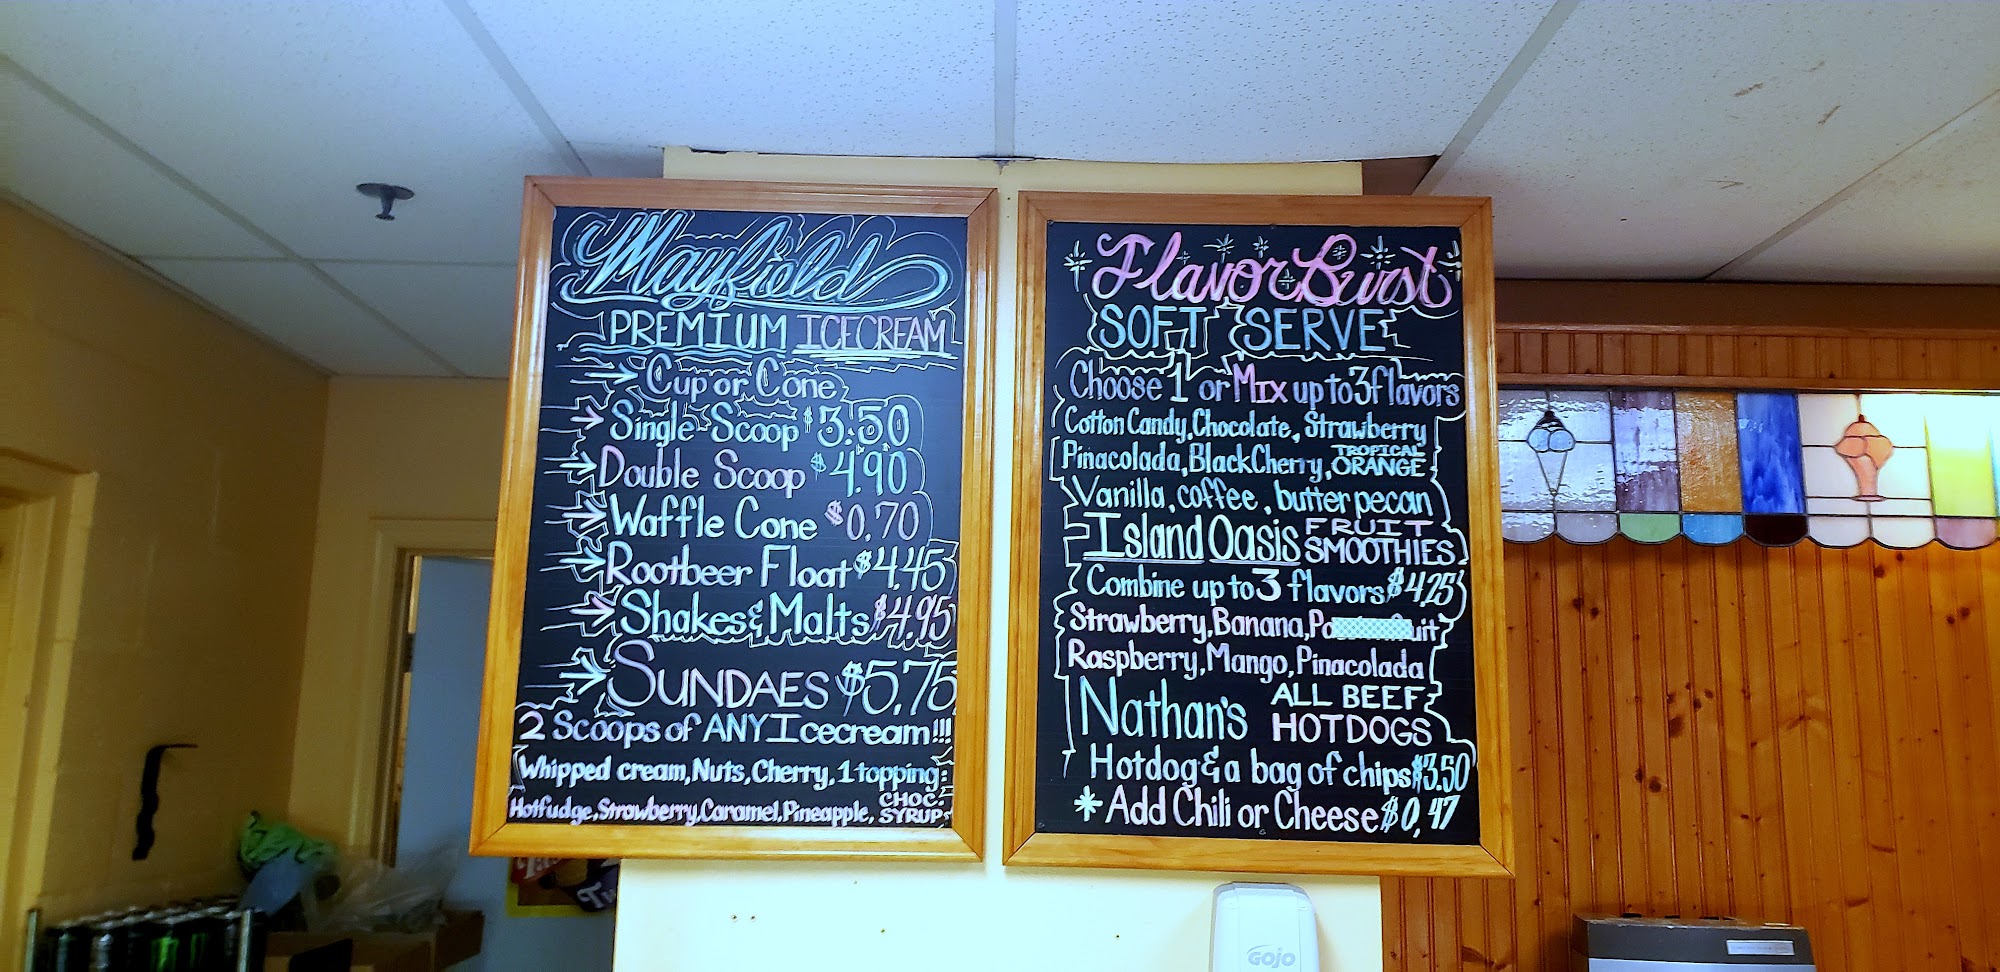 Mayfield
PREMIUM ICECREAM
Cup or Cone
Single Scoop $3.50
Double Scoop $4.90
Waffle Cone $0.70
Rootbeer Float $4.45
Shakes & Malts $4.95
SUNDAES $5.75
2 Scoops of ANY Icecream!!!
Whipped cream, Nuts, Cherry, 1 topping:
Hotfudge, Strawberry, Caramel, Pineapple, CHOC. SYRUP
Flavor Burst
SOFT SERVE
Choose 1 or MIX up to 3 flavors
Cotton Candy, Chocolate, Strawberry
Pinacolada, Black Cherry, TROPICAL ORANGE
Vanilla, coffee, butter pecan
Island Oasis FRUIT SMOOTHIES
Combine up to 3 flavors $4.25
Strawberry, Banana,
Raspberry, Mango, Pinacolada
Nathan's ALL BEEF HOTDOGS
Hotdog & a bag of chips $3.50
* Add Chili or Cheese $0,47
GOJO